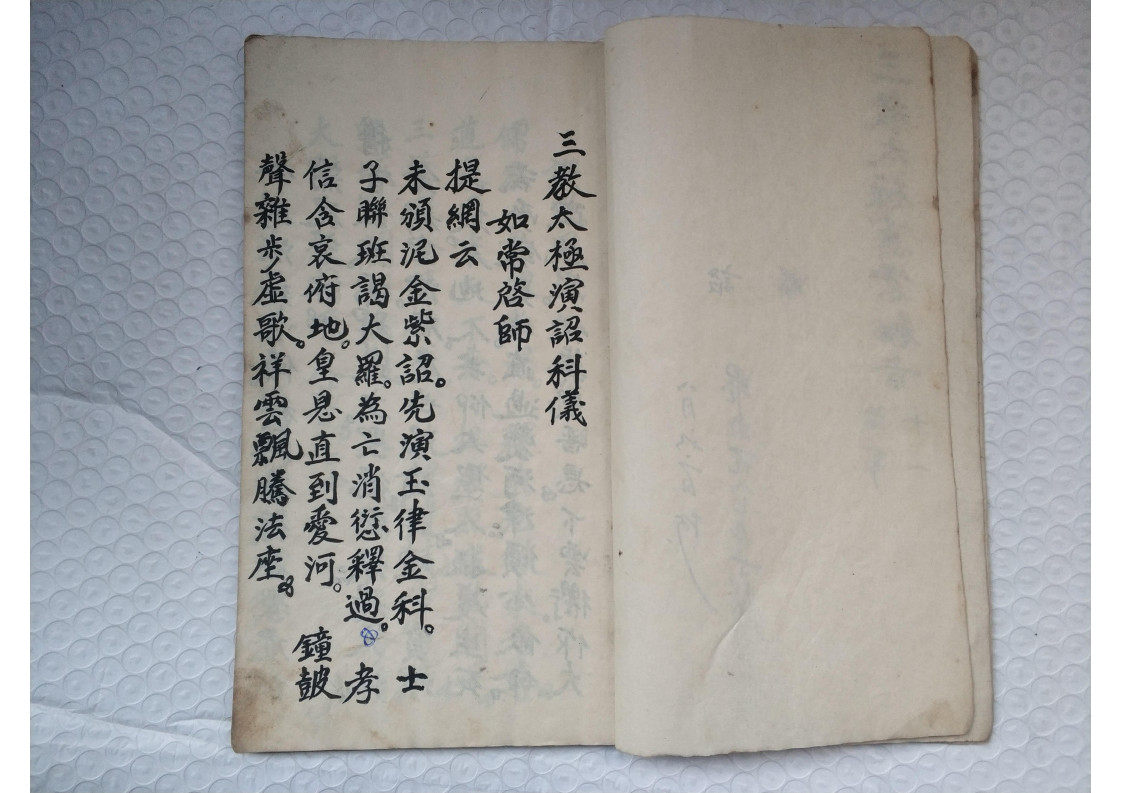 三教太極演詔科儀
如常啓師
提網云
未頒泥金紫詔。先演玉律金科。士
子聯班謁大羅。為亡消愆釋過。孝
信含哀俯地。皇恩直到愛河。鐘皷
聲雜步虛歌。祥雲飄騰法座。